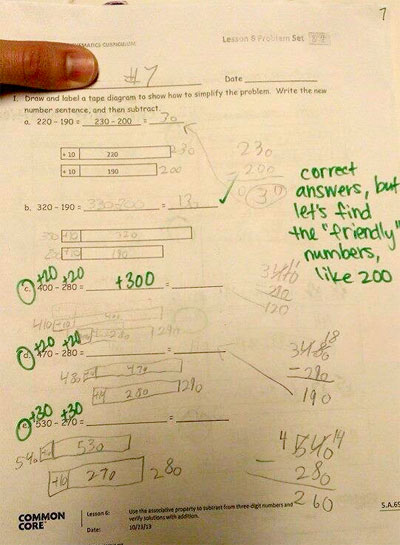 7
MATHEMATICS CURRICULUM
Lesson 8 Problem Set
#7
Date
1. Draw and label a tape diagram to show how to simplify the problem. Write the new
number sentence, and then subtract.
a. 220 – 190 = 230 - 200 = 30
+ 10 220 230
+ 10 190 200
230
200
30
correct
answers, but
let's find
the "friendly"
numbers,
like 200
b. 320 – 190 = 330-200 = 130
+20 +20
c. 400 – 280 = +300 =
120
+20 +20
d. 470 – 280 = =
480 470
+10 280 290
- 290
190
+30 +30
e. 530 – 270 = =
540 +10 530
+10 270 280
4 540 14
- 280
260
COMMON
CORE
Lesson 8:
Date:
Use the associative property to subtract from three-digit numbers and
verify solutions with addition.
10/23/13